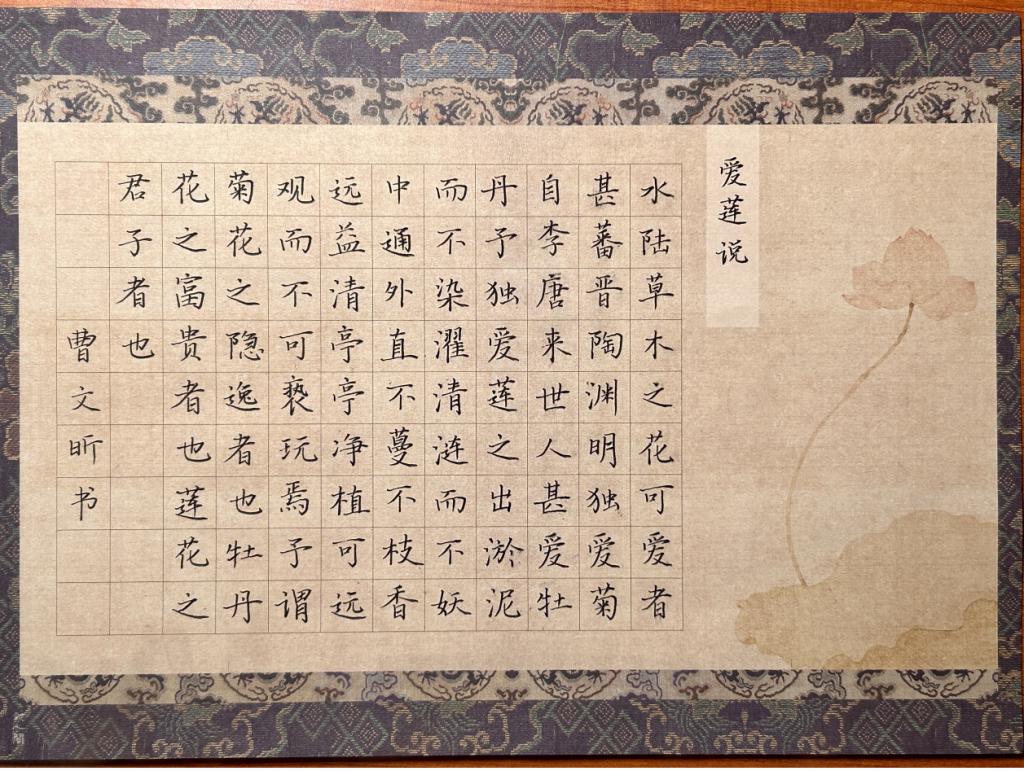 爱莲说
水陆草木之花可爱者
甚蕃晋陶渊明独爱菊
自李唐来世人甚爱牡
丹予独爱莲之出淤泥
而不染濯清涟而不妖
中通外直不蔓不枝香
远益清亭亭净植可远
观而不可亵玩焉予谓
菊花之隐逸者也牡丹
花之富贵者也莲花之
君子者也
曹文昕书